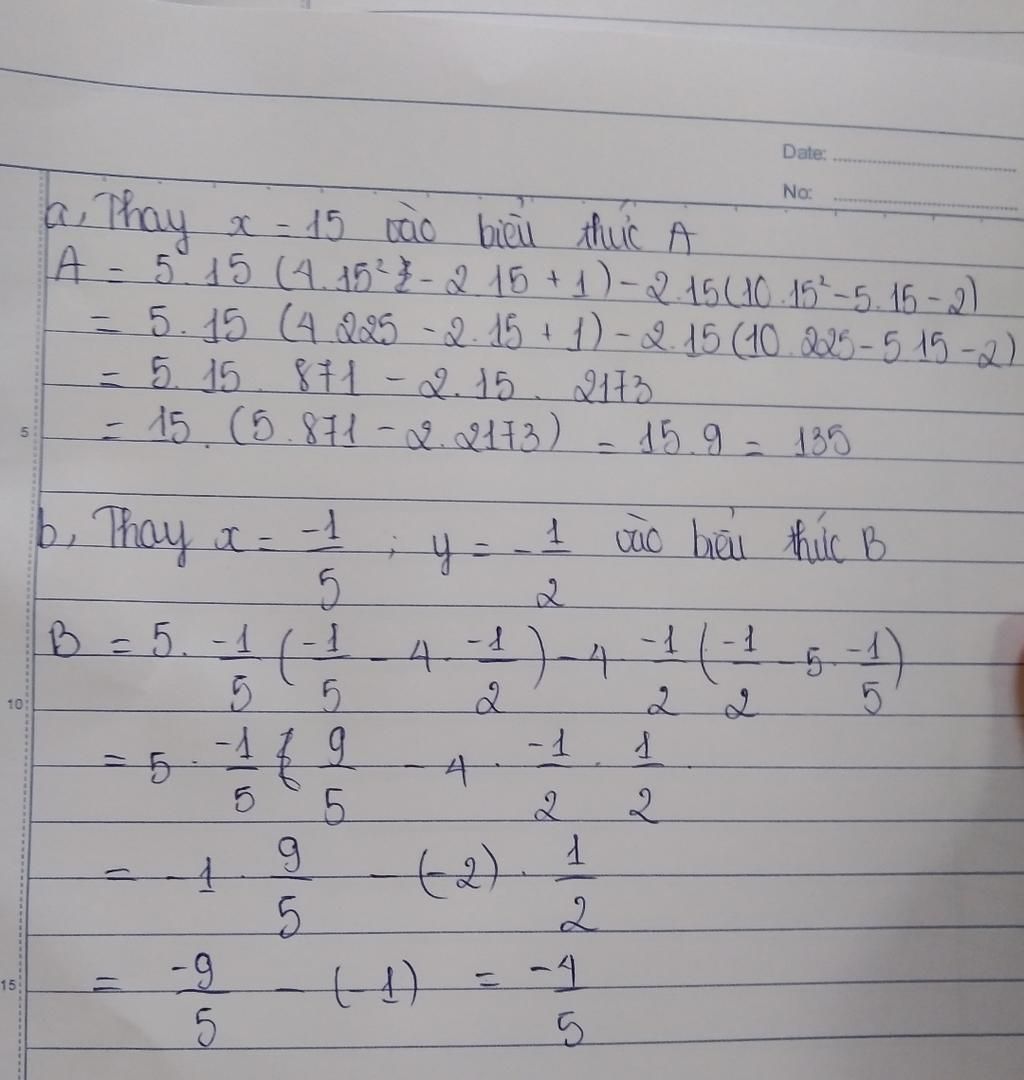 Date:
No:
a, Thay x = 15 vào biểu thức A
A = 5.15 (4.15² - 2.15 + 1) - 2.15(10.15² - 5.15 - 2)
= 5.15 (4.225 - 2.15 + 1) - 2.15(10.225 - 5.15 - 2)
= 5.15.871 - 2.15.2173
5
= 15.(5.871 - 2.2173) = 15.9 = 135
b, Thay x = -1/5 ; y = -1/2 vào biểu thức B
B = 5.-1/5 (-1/5 - 4.-1/2) - 4.-1/2 (-1/2 - 5.-1/5)
10
= 5.-1/5 . 9/5 - 4.-1/2.1/2
= -1.9/5 - (-2).1/2
15
= -9/5 - (-1) = -4/5